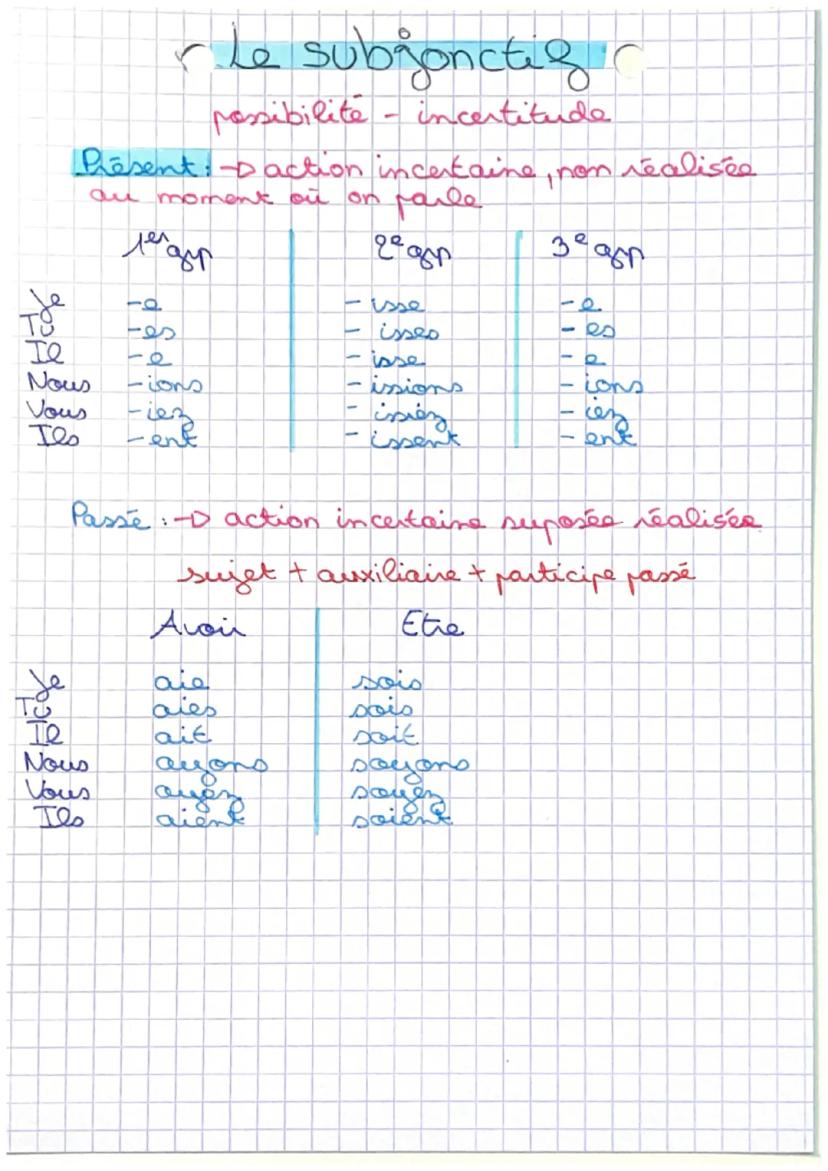 Le subjonctif
possibilité - incertitude
Présent : → action incertaine, non réalisée
au moment où on parle
1er grp 2e grp 3e grp
Je -e -isse -e
Tu -es -isses -es
Il -e -isse -e
Nous -ions -issions -ions
Vous -iez -issiez -iez
Ils -ent -issent -ent
Passé : → action incertaine suposée réalisée
sujet + auxiliaire + participe passé
Avoir Etre
Je aie sois
Tu aies sois
Il ait soit
Nous ayons soyons
Vous ayez soyez
Ils aient soient